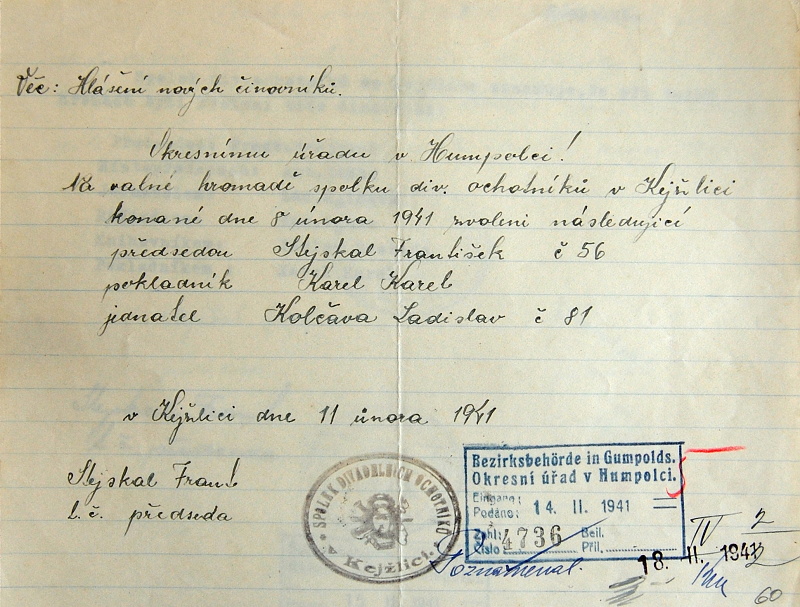 Věc: Hlášení nových činovníků.
Okresnímu úřadu v Humpolci!
Na valné hromadě spolku div. ochotníků v Kejžlici
konané dne 8 února 1941 zvoleni následující
předsedou Stejskal František č 56
pokladník Karel Kareb
jednatel Kolčava Ladislav č 81
v Kejžlici dne 11 února 1941
Stejskal Frant
t. č. předseda
SPOLEK DIVADELNÍCH OCHOTNÍKŮ
v Kejžlici.
Bezirksbehörde in Gumpolds.
Okresní úřad v Humpolci.
Eingang:
Podáno: 14. II. 1941
Zahl:
Číslo 4736
Beil.
Příl.
IV 2
18. II. 1941
60